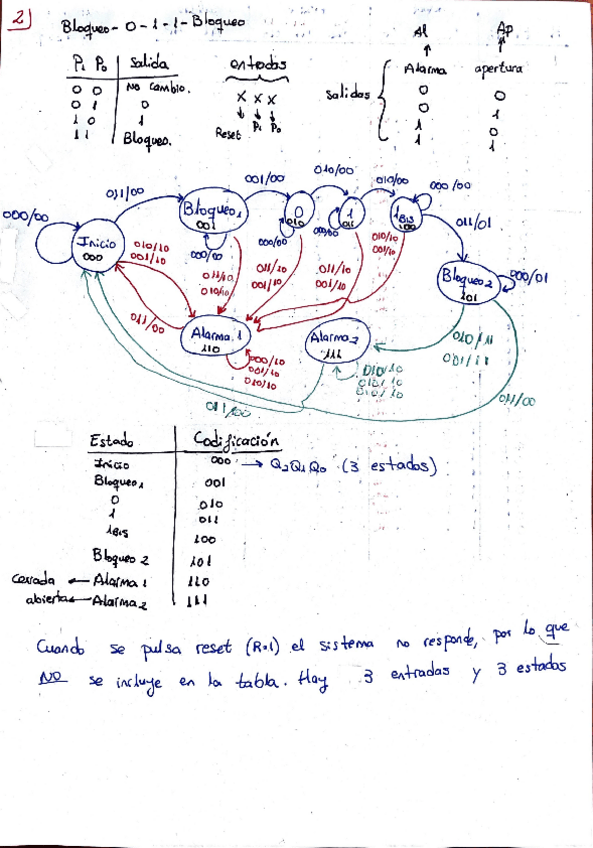 2)
Bloqueo - 0 - 1 - 1 - Bloqueo
Al Ap
P1 P0 Salida
0 0 No cambio.
0 1 0
1 0 1
1 1 Bloqueo.
entradas
X X X
Reset P1 P0
Salidas
Alarma apertura
0 0
0 1
1 0
1 1
000/00
011/00
001/00
010/00
010/00
000/00
011/01
Inicio
000
Bloqueo1
001
0
010
1
011
1BIS
100
Bloqueo2
101
000/01
000/00
000/00
010/10
001/10
011/10
010/10
011/10
001/10
011/10
001/10
010/10
001/10
011/00
Alarma.1
110
000/10
001/10
010/10
Alarma2
111
010/11
001/11
010/10
011/00
011/00
Estado Codificación
Inicio 000 → Q2Q1Q0 (3 estados)
Bloqueo1 001
0 010
1 011
1BIS 100
Bloqueo 2 101
cerrada ← Alarma 1 110
abierta ← Alarma2 111
Cuando se pulsa reset (R=1) el sistema no responde, por lo que
NO se incluye en la tabla. Hay 3 entradas y 3 estados